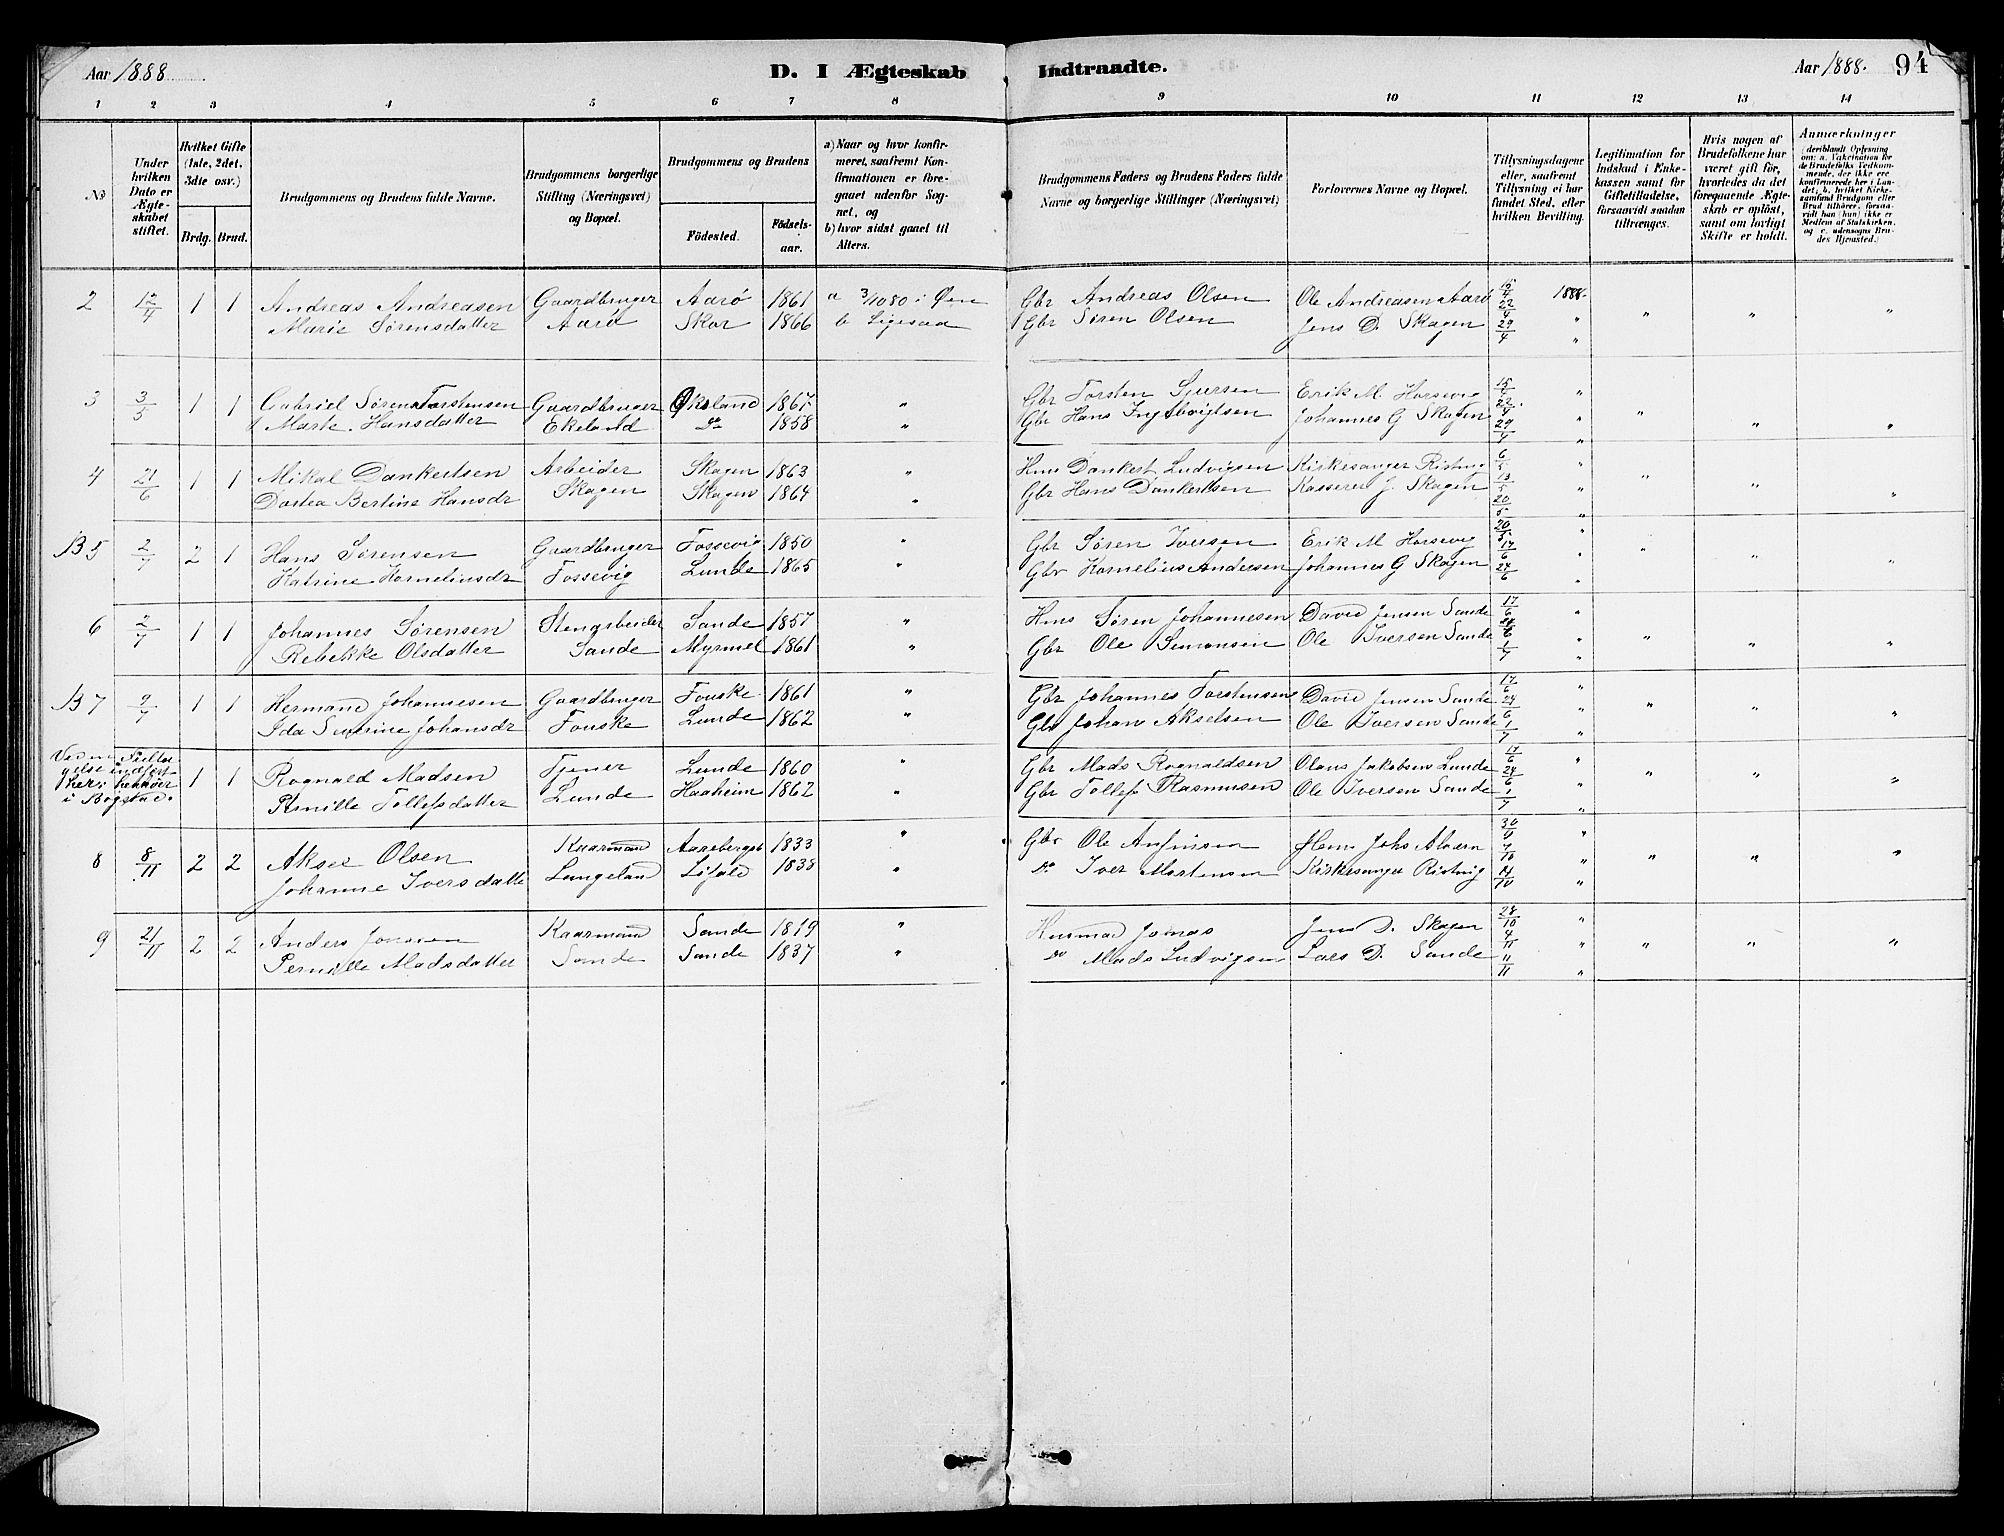 Aar 1888.
D. I Ægteskab Indtraadte.
Aar 1888. 94
1 2 3 4 5 6 7 8 9 10 11 12 13 14
No
Under hvilken Dato er Ægteskabet stiftet.
Hvilket Gifte (1ste, 2det, 3die osv.)
Brdg. Brud.
Brudgommens og Brudens fulde Navne.
Brudgommens borgerlige Stilling (Næringsvei) og Bopæl.
Brudgommens og Brudens
Fødested.
Fødselsaar.
a) Naar og hvor konfirmeret, saafremt Konfirmationen er foregaaet udenfor Sognet, og
b) hvor sidst gaaet til Alters.
Brudgommens Faders og Brudens Faders fulde Navne og borgerlige Stillinger (Næringsvei)
Forlovernes Navne og Bopæl.
Tillysningsdagene eller, saafremt Tillysning ei har fundet Sted, efter hvilken Bevilling.
Legitimation for Indskud i Enkekassen samt for Giftetilladelse, forsaavidt saadan tiltrænges.
Hvis nogen af Brudefolkene har været gift før, hvorledes da det foregaaende Ægteskab er opløst, samt om lovligt Skifte er holdt.
Anmærkninger (deriblandt Oplysning om: a. Vakcination for de Brudefolks Vedkommende, der ikke ere konfirmerede her i Landet; b. hvilket Kirkesamfund Brudgom eller Brud tilhører, forsaavidt han (hun) ikke er Medlem af Statskirken, og c. udensogns Brudes Hjemsted.)
2 1 1 Andreas Andreasen Gaardbruger Aarø 1861 a 3/10 80 i Øen Gbr Andreas Olsen Ole Andreasen Aarø 15/4 1888.
Marie Sørensdatter Aarø Skor 1866 b Ligesaa Gbr Søren Olsen Jens D. Skagen 22/4 29/4 " " " "
3 3/5 1 1 Gabriel Søren Torstensen Gaardbruger Økeland 1867 " Gbr Torsten Sjursen Erik M. Horsevig 15/4 "
Marte Hansdatter Ekeland Do 1858 " Gbr Hans Johannes G Skagen 22/4 29/4 " " " "
4 21/6 1 1 Mikal Dankertsen Arbeider Skagen 1863 " Hms Dankert Ludvigsen Kirkesanger Ristvig 6/5 "
Dortea Bertine Hansdr Skagen Skagen 1864 " Gbr Hans Dankertsen Kasserer J. Skagen 13/5 20/5 " " " "
B 5 2/7 2 1 Hans Sørensen Gaardbruger Fossevig 1850 " Gbr Søren Erik M Horsevig "
Katrine Kornelius­dr Fossevig Lunde 1865 " Gbr Kornelius Andersen Johannes G Skagen 17/6 24/6 " " " "
6 2/7 1 1 Johannes Sørensen Stenarbeider Sande 1857 " Hms Søren Johannesen David Jensen Sande 17/6 "
Rebekke Olsdatter Sande Myrmel 1861 " Gbr Ole Simonsen Ole Iversen Sande 24/6 1/7 " " " "
B 7 1 1 Hermand Johannesen Gaardbruger Fouske 1861 " Gbr Johannes Torstensen David Jensen Sande 17/6 "
Ida Severine Johansdr Fouske Lunde 1862 " Gbr Johan Akselsen Ole Iversen Sande 24/6 1/7 " " " "
1 1 Rognald Madsen Tjener Lunde 1860 " Gbr Mads Rognaldsen Olaus Jakobsen Lunde 17/6 "
i Bogstad. Pernille Tollefsdatter Lunde Haaheim 1862 " Gbr Tollef Rasmussen Ole Iversen Sande 24/6 1/7 " " " "
8 8/11 2 2 Aksel Olsen Kaarmand 1833 " Gbr Ole Anfinsen 30/9 "
Johanne Iversdatter Langeland 1838 " do Iver Mortensen Kirkesanger Ristvig 7/10 14/10 " " " "
9 21/11 2 2 Anders Kaarmand Sande 1819 " Husmand Jonas Jens D. Skagen 28/10 "
Pernille Madsdatter Sande Sande 1837 " do Mads Ludvigsen Lars D. Sande 4/11 11/11 " " " "